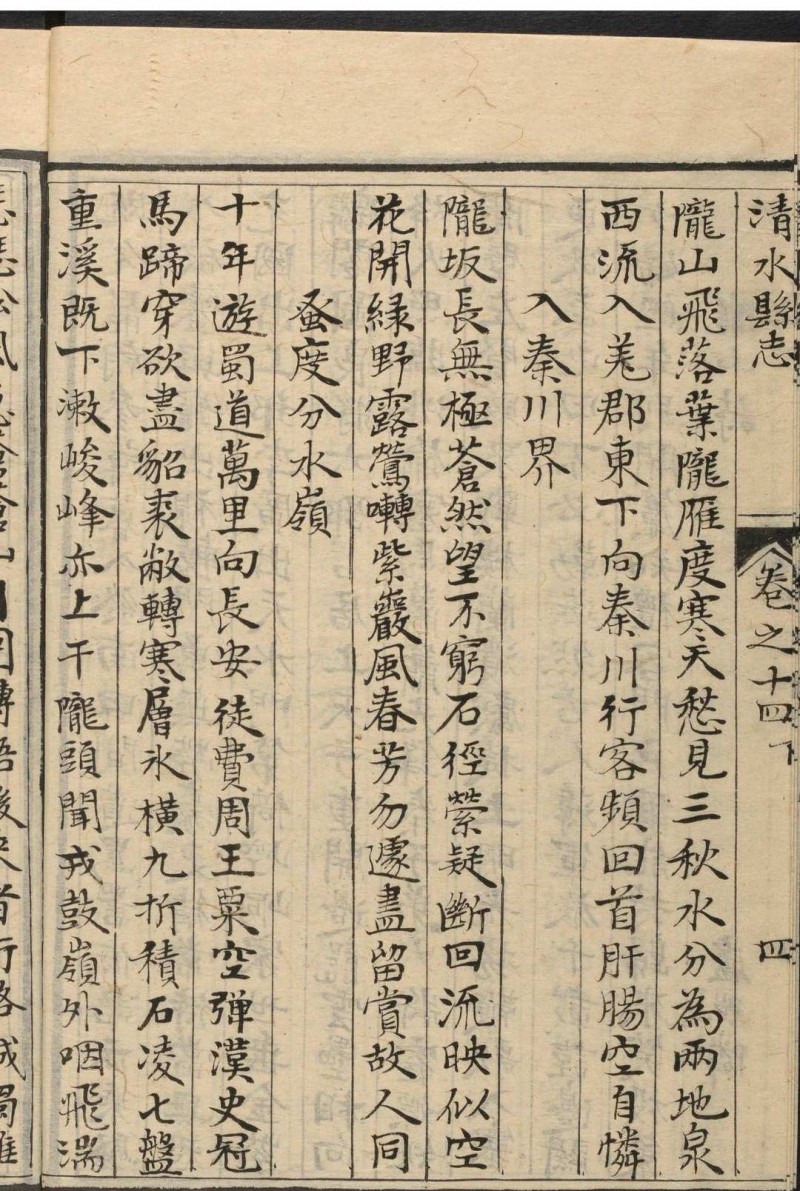 清水縣志
卷之十四下
四
隴山飛落葉隴雁度寒天愁見三秋水分為兩地泉
西流入羌郡東下向秦川行客頻回首肝腸空自憐
入秦川界
隴坂長無極蒼然望不窮石徑縈疑斷回流映似空
花開緑野露鶯囀紫巖風春芳勿遽盡留賞故人同
蚤度分水嶺
十年遊蜀道萬里向長安徒費周王粟空彈漢史冠
馬蹄穿欲盡貂裘敝轉寒層氷橫九折積石凌七盤
重溪既下漱峻峰亦上干隴頭聞戎鼓嶺外咽飛湍